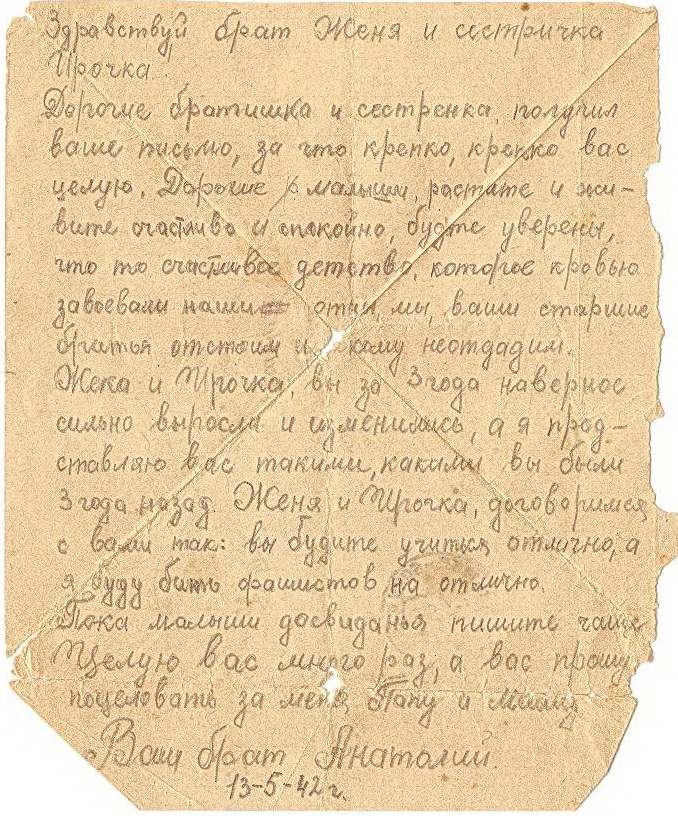 Здравствуй брат Женя и сестричка
Ирочка.
Дорогие братишка и сестренка, получил
ваше письмо, за что крепко, крепко вас
целую. Дорогие малыши, растите и жи-
вите счастливо и спокойно, будте уверены,
что то счастливое детство, которое кровью
завоевали наши отцы, мы, ваши старшие
братья отстоим и неотдадим.
Жека и Ирочка, вы за 3 года наверное
сильно выросли и изменились, а я пред-
ставляю вас такими, какими вы были
3 года назад. Женя и Ирочка, договоримся
с вами так: вы будите учиться отлично, а
я буду бить фашистов на отлично.
Пока малыши досвиданья пишите чаще
Целую вас много раз, а вас прошу
поцеловать за меня Папу и Маму
Ваш брат Анатолий.
13-5-42 г.